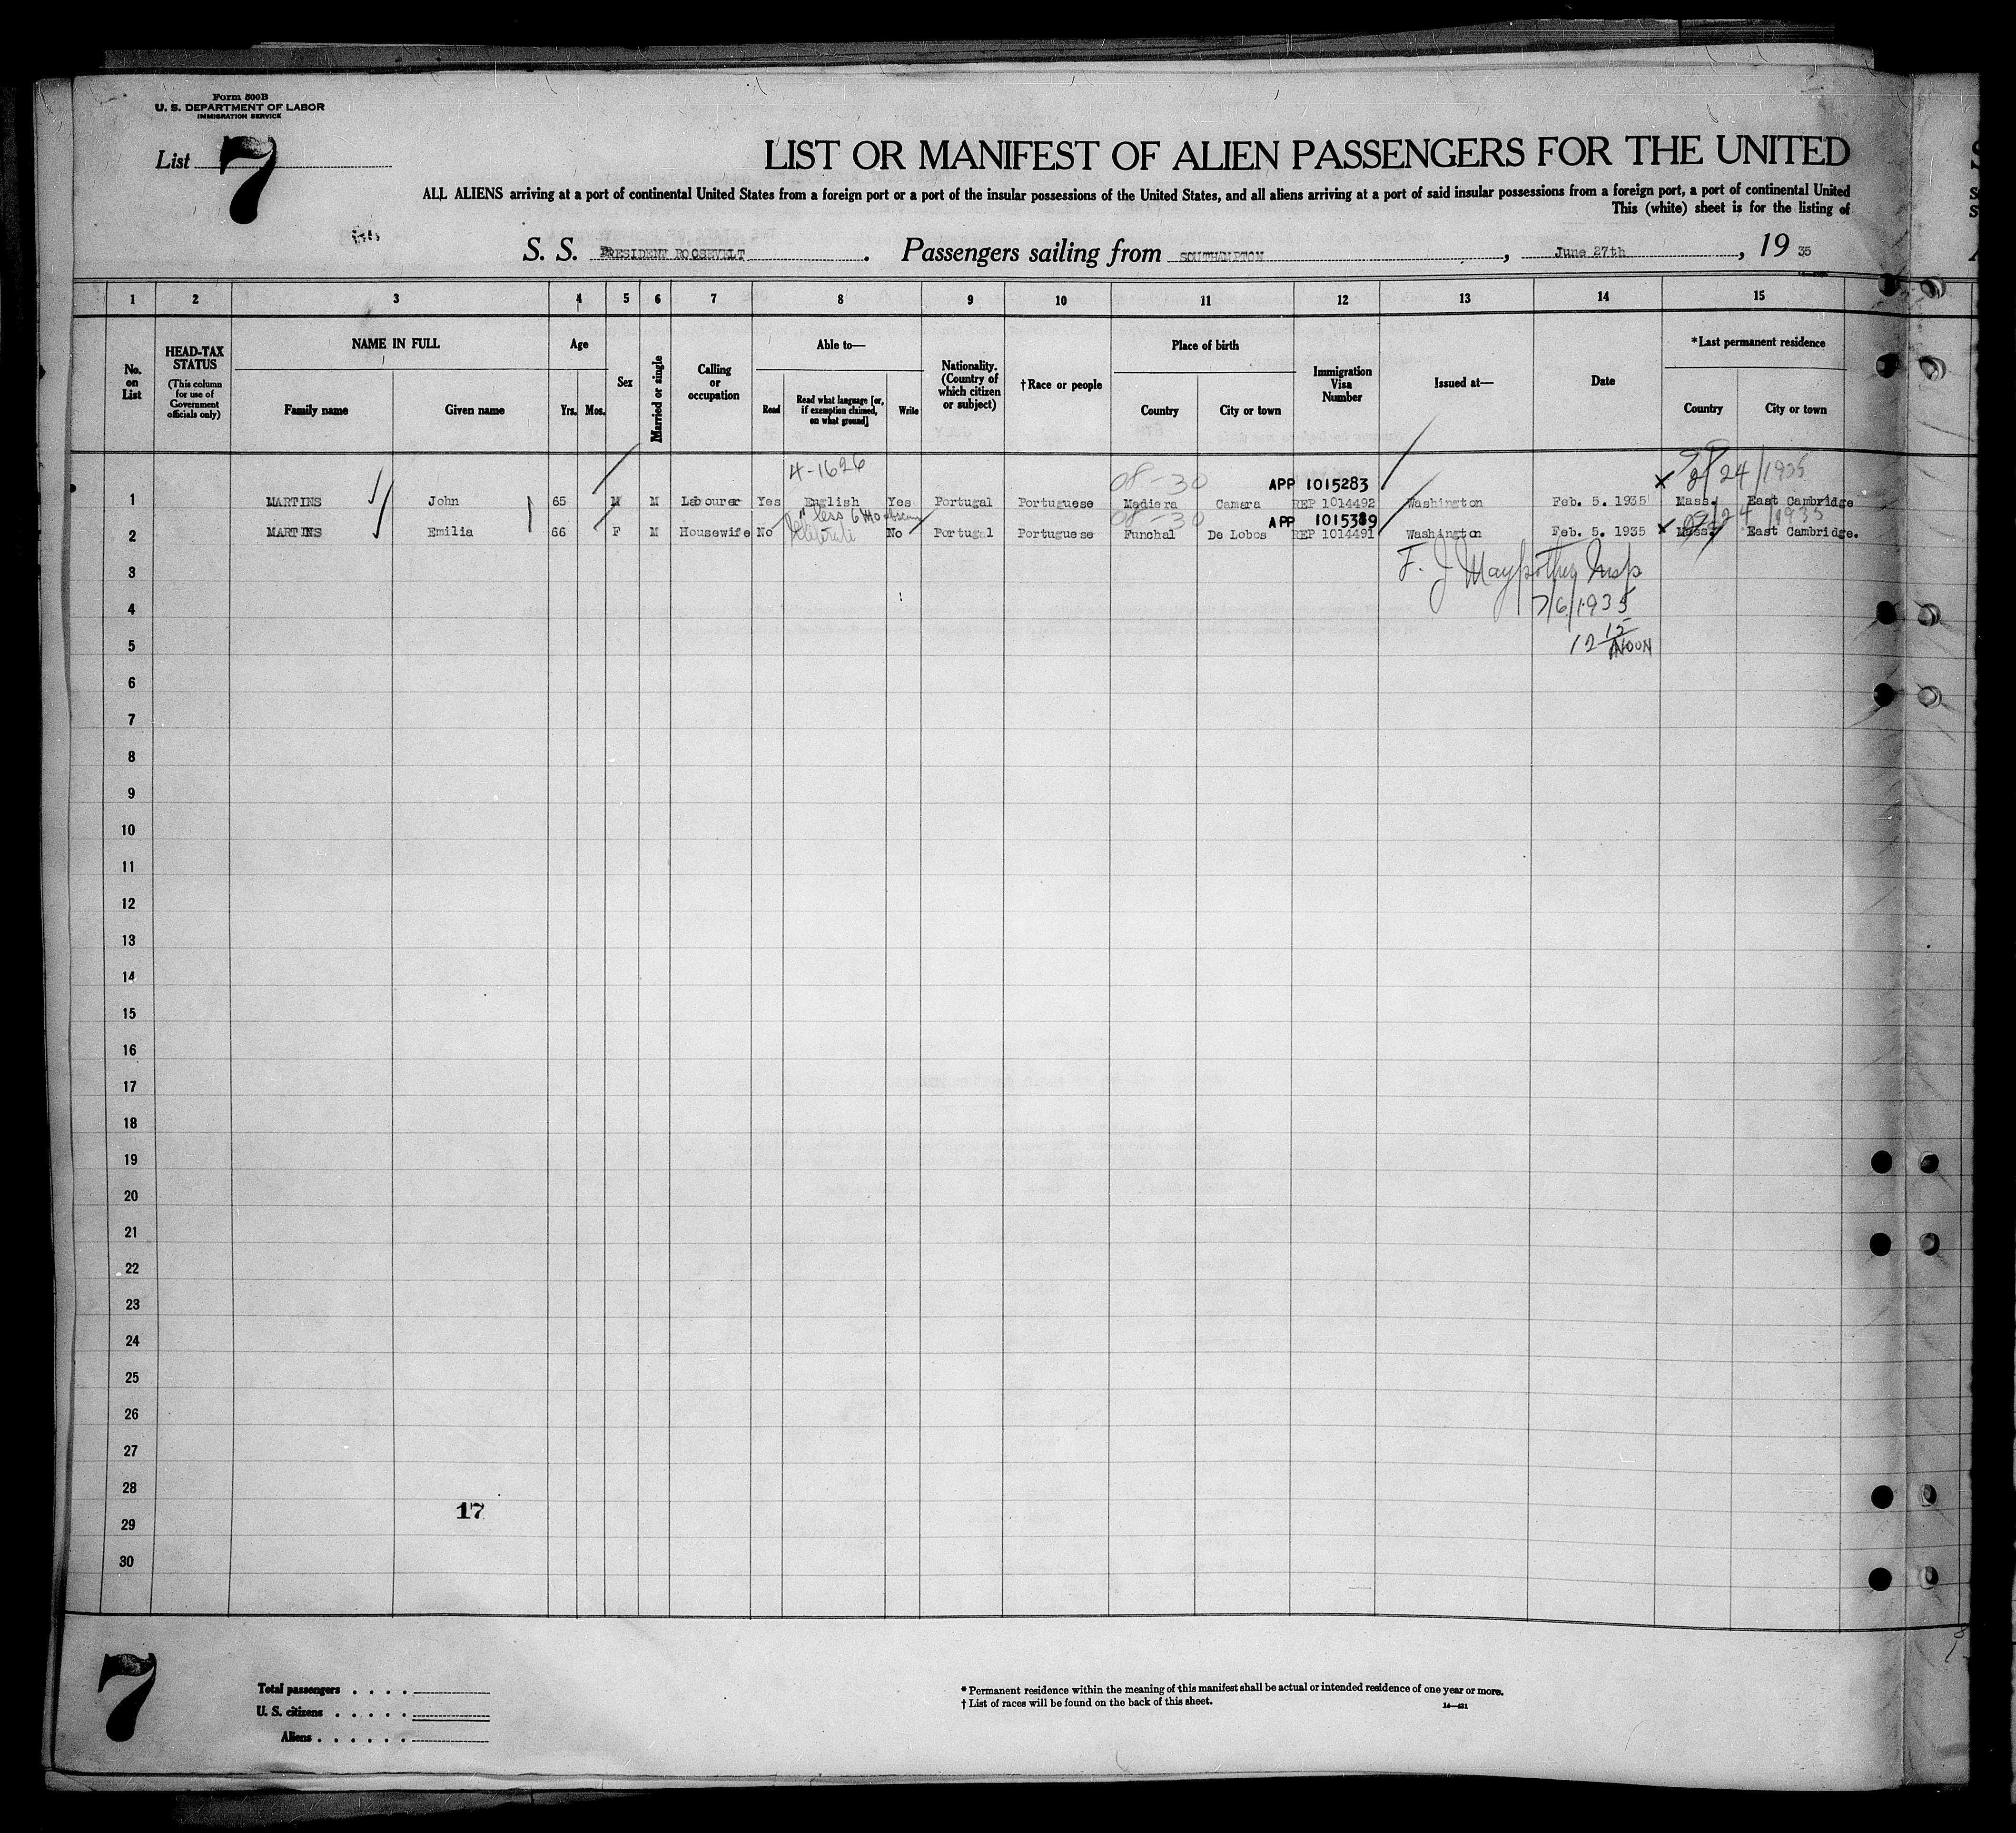 Form 500B
U. S. DEPARTMENT OF LABOR
IMMIGRATION SERVICE
List 7
LIST OR MANIFEST OF ALIEN PASSENGERS FOR THE UNITED
ALL ALIENS arriving at a port of continental United States from a foreign port or a port of the insular possessions of the United States, and all aliens arriving at a port of said insular possessions from a foreign port, a port of continental United
This (white) sheet is for the listing of
S. S. PRESIDENT ROOSEVELT . Passengers sailing from SOUTHAMPTON , June 27th , 19 35
1 2 3 4 5 6 7 8 9 10 11 12 13 14 15
No. on List
HEAD-TAX STATUS
(This column for use of Government officials only)
NAME IN FULL
Family name Given name
Age
Yrs. Mos.
Sex
Married or single
Calling or occupation
Able to—
Read
Read what language [or, if exemption claimed, on what ground]
Write
Nationality. (Country of which citizen or subject)
†Race or people
Place of birth
Country City or town
Immigration Visa Number
Issued at—
Date
*Last permanent residence
Country City or town
4-1626
08-30 APP 1015283 24/1935
1 MARTINS John 65 M M Labourer Yes English Yes Portugal Portuguese Madiera Camara REP 1014492 Washington Feb. 5. 1935 Mass. East Cambridge
less 6 Mo 08-30 APP 1015389 24/1935
2 MARTINS Emilia 66 F M Housewife No No Portugal Portuguese Funchal De Lobos REP 1014491 Washington Feb. 5. 1935 Mass. East Cambridge.
3 F. J. Insp
4 7/6/1935
5 12 15 NOON
6
7
8
9
10
11
12
13
14
15
16
17
18
19
20
21
22
23
24
25
26
27
28
17
29
30
7
Total passengers
U. S. citizens
Aliens
* Permanent residence within the meaning of this manifest shall be actual or intended residence of one year or more.
† List of races will be found on the back of this sheet.
14—421